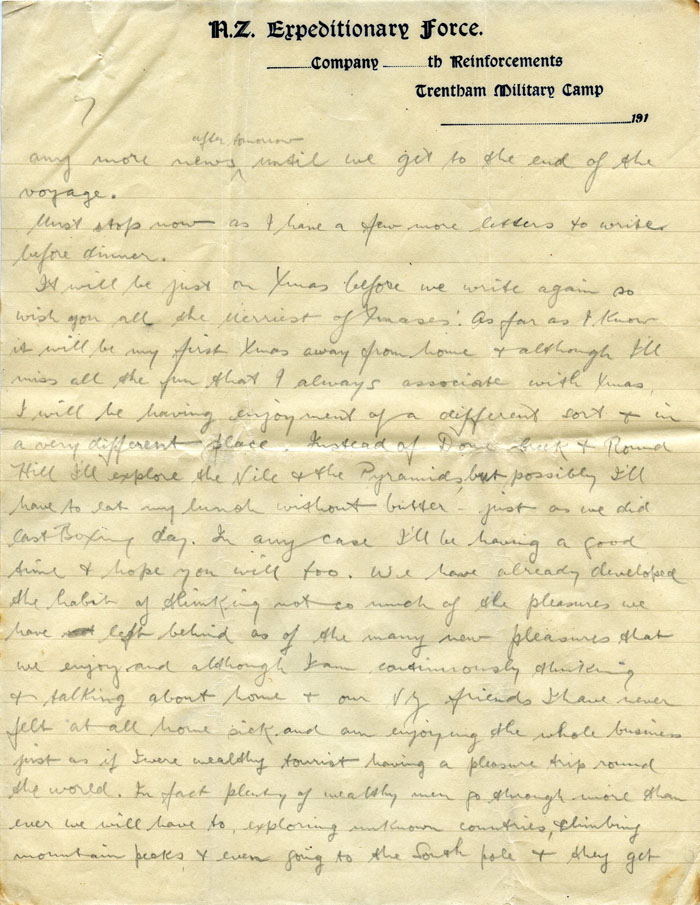 N.Z. Expeditionary Force.
Company th Reinforcements
Trentham Military Camp
191
7
after tomorrow
any more news ^ until we get to the end of the
voyage.
Must stop now as I have a few more letters to write
before dinner.
It will be just on Xmas before we write again so
wish you all the Merriest of Xmases. As far as I know
it will be my first Xmas away from home & although I'll
miss all the fun that I always associate with Xmas,
I will be having enjoyment of a different sort & in
a very different place. Instead of Creek & Round
Hill I'll explore the Nile & the Pyramids, but possibly I'll
have to eat my lunch without butter - just as we did
last Boxing day. In any case I'll be having a good
time & hope you will too. We have already developed
the habit of thinking not so much of the pleasures we
have left behind as of the many new pleasures that
we enjoy and although I am continuously thinking
& talking about home & our NZ friends I have never
felt at all home sick and am enjoying the whole business
just as if I were wealthy tourist having a pleasure trip round
the world. In fact plenty of wealthy men go through more than
ever we will have to, exploring unknown countries, climbing
mountain peaks & even going to the South pole & they get